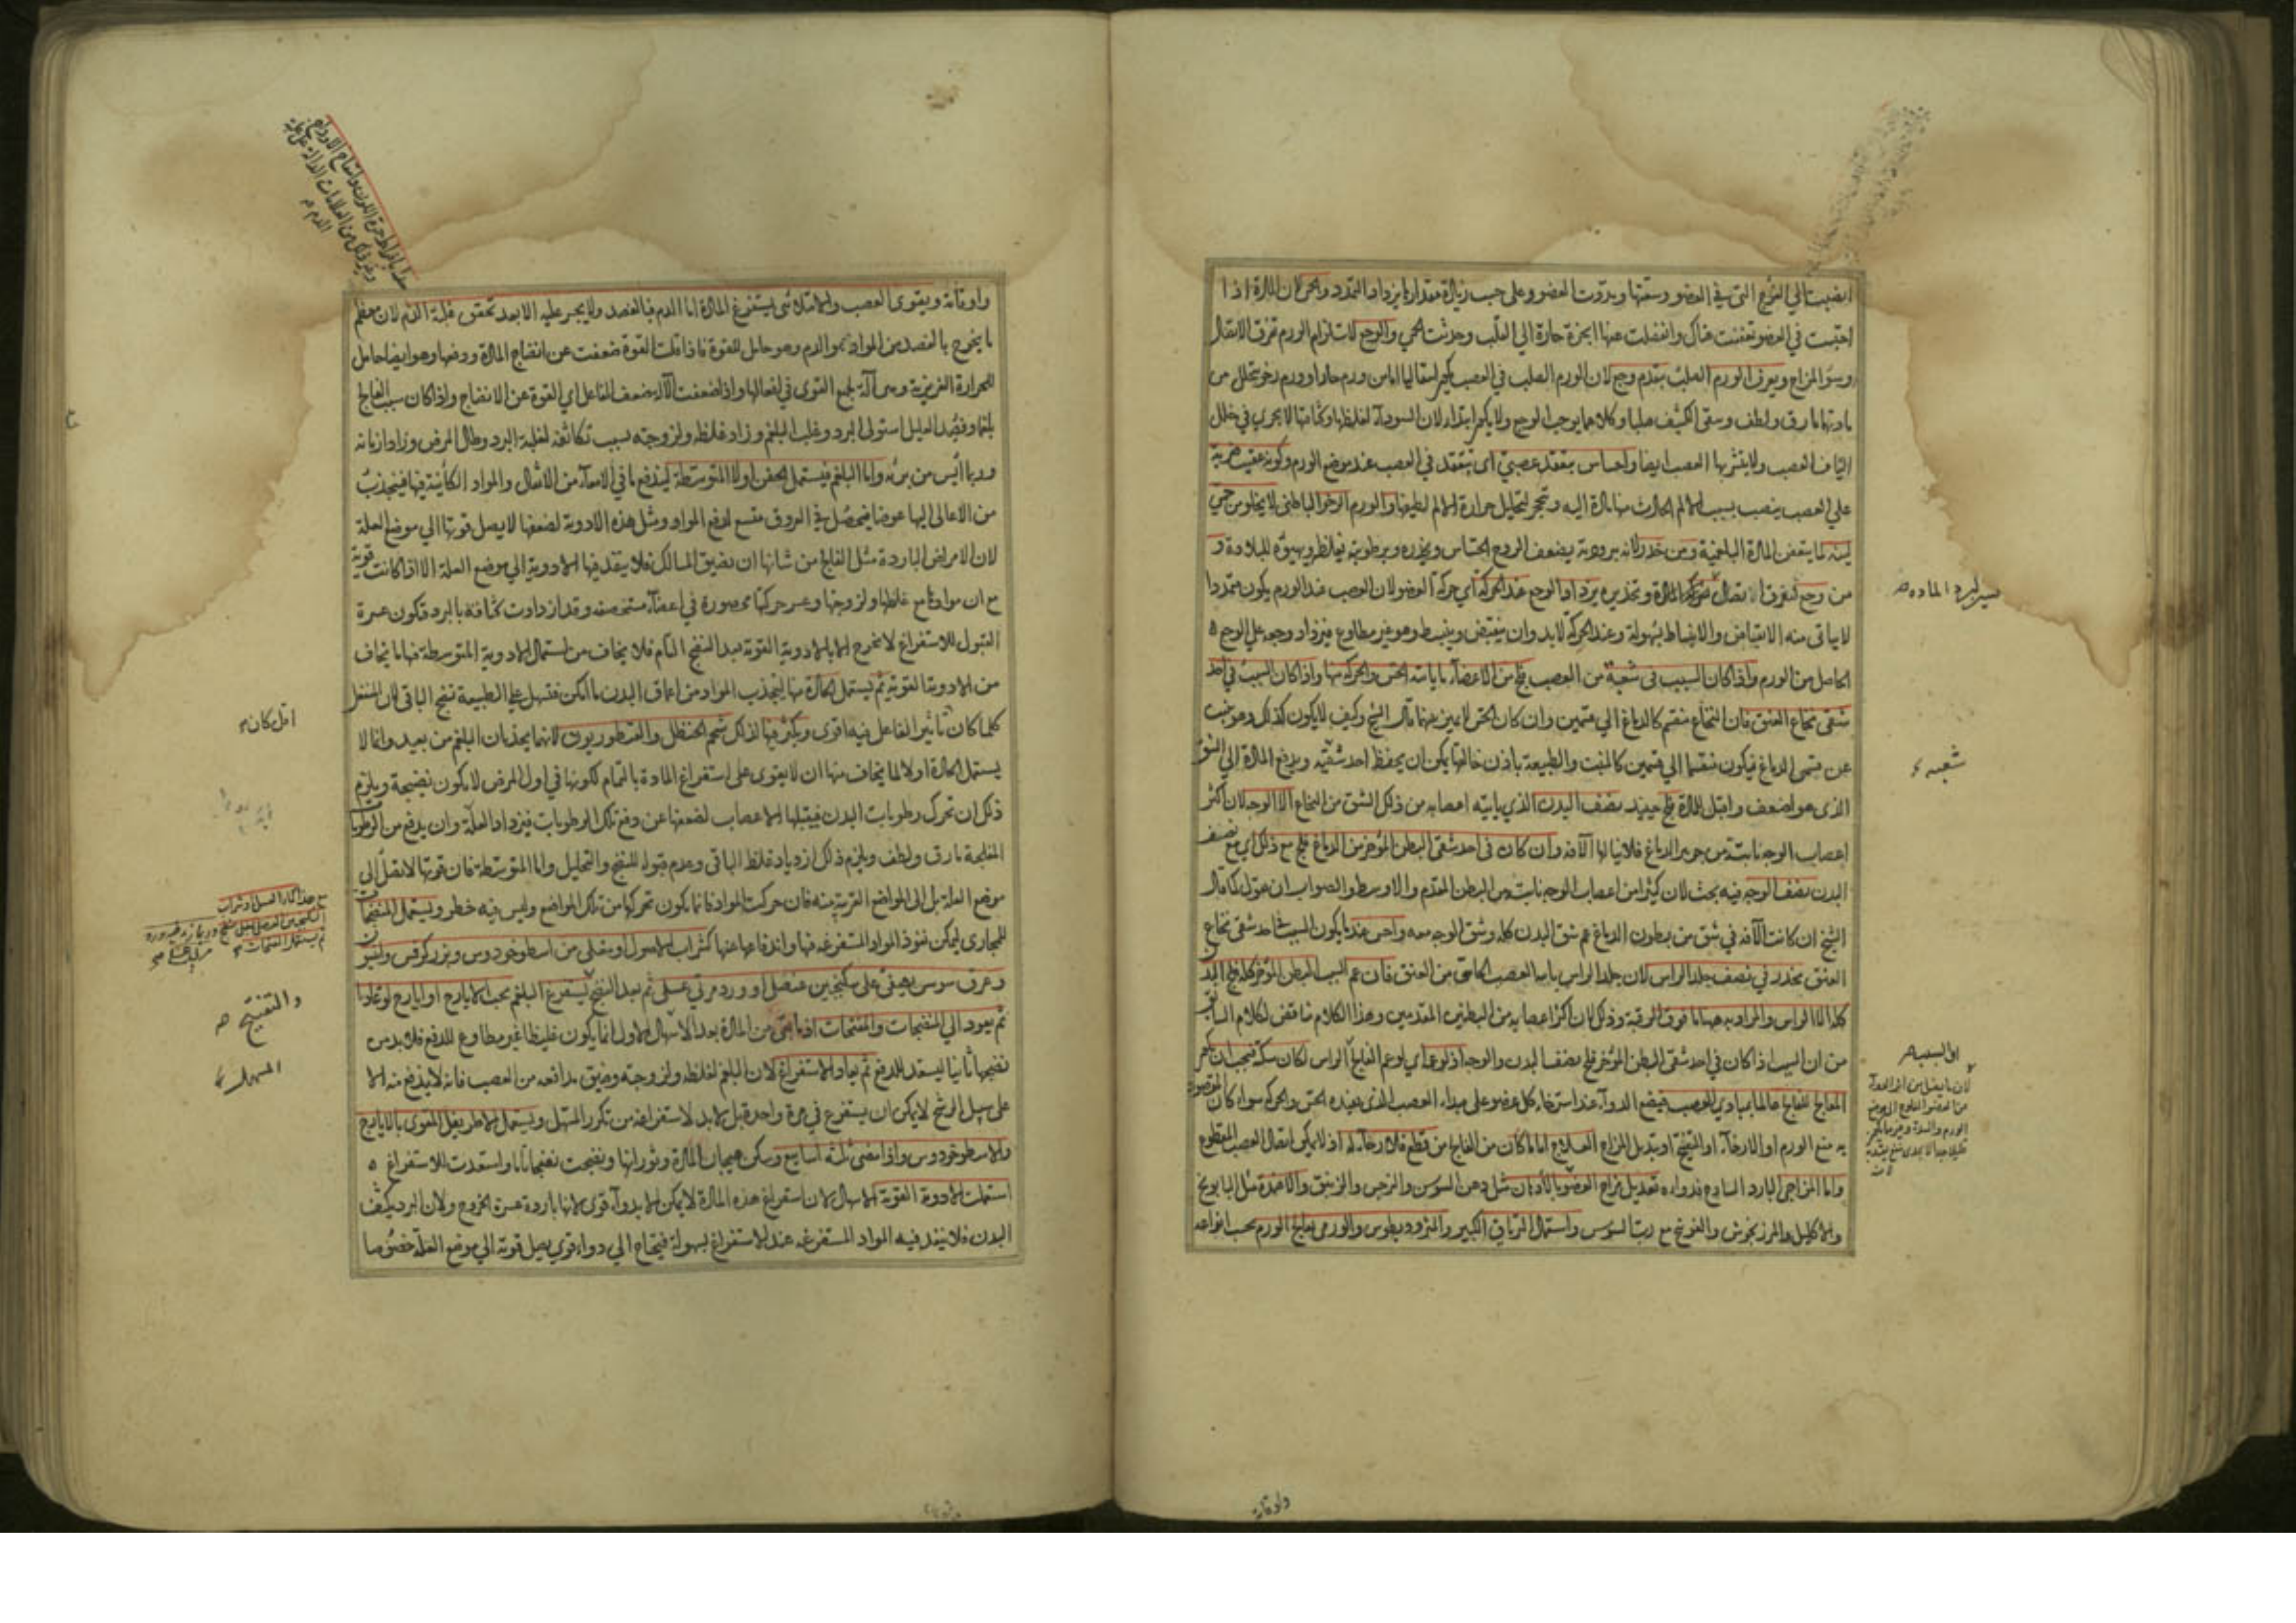 انصبت الي الفرج التي في العضو وسعتها ومددت العضو وعلي حسب زيادة مقدارها يزداد التمدد والحمي لان المادة اذا
احتبست في العضو تعفنت هناك وانفصلت عنها ابخرة حارة الي القلب وحدثت الحمي والوجع لاستلزام الورم تفرق الاتصال
وسوء المزاج ويعرف الورم الصلب بتقدم وجع لان الورم الصلب في العصب اما من ورم حار او ورم رخو تحلل من
مادتهما ما رق ولطف وبقي الكثيف صلبا وكلاهما يوجب الوجع ولا يكون ابتداء لان السوداء لغلظها لا يجري في خلل
الياف العصب ولا يتشربها العصب ايضا واحساس بتعقد عصبي اي بتعقد في العصب عند موضع الورم وكونه عقيب ضربة
علي العصب ينصب بسبب الالم الحادث منها مادة اليه وتحجر لتحليل حرارة الالم لطيفها والورم الرخو الباطني لا يخلو من حمي
لينة لما يتعفن المادة البلغمية ومن خدر لانه ببرودته يضعف الروح الحساس ويخدره وبرطوبته يغلظه ويهيؤه للبلادة و
من وجع لتفرق الاتصال المادة وتخديره يزداد الوجع عند الحركة اي حركة العضو لان العصب عند الورم يكون متمددا
لا يتاتي منه الانقباض والانبساط بسهولة وعند الحركة لا بد وان ينقبض وينبسط وهو غير مطاوع فيزداد وجعه علي الوجع
الحاصل من الورم واذا كان السبب في شعبة من العصب فلج من الاعضاء ما ياتيه الحس والحركة منها واذا كان السبب في احد
شقي نخاع العنق فان النخاع منقسم كالدماغ الي قسمين وان كان الحس لا يميزهما قال الشيخ وكيف لا يكون كذلك وهو ينبت
عن قسمي الدماغ فيكون منقسما الي قسمين كالمنبت والطبيعة باذن خالقها يمكن ان يحفظ احد شقيه ويدفع المادة الي الشق
الذي هو اضعف واقبل للمادة فلج حينئذ نصف البدن الذي ياتيه اعصابه من ذلك الشق من النخاع الا الوجه لان اكثر
اعصاب الوجه نابتة من جوهر الدماغ فلا ينالها الآفة وان كان في احد شقي البطن المؤخر من الدماغ فلج مع ذلك اي مع نصف
البدن نصف الوجه فيه بحث لان كثيرا من اعصاب الوجه نابتة من البطن المقدم والاوسط والصواب ان نقول كما قال
الشيخ ان كانت الآفة في شق من بطون الدماغ عم شق البدن كله وشق الوجه معه واحس عند ما يكون السبب في احد شقي نخاع
العنق بخدر في نصف جلد الراس لان جلد الراس ياتيه العصب الحاسي من العنق فان عم السبب البطن المؤخر كله فلج البدن
كله الا الراس والمراد به ههنا ما فوق الرقبة وذلك لان اكثر اعصابه من البطنين المقدمين وهذا الكلام مناقض لكلام السابق
من ان السبب اذا كان في احد شقي البطن المؤخر فلج نصف البدن والوجه اذ لو عم اي لو عم الفالج الراس لكان سكتة فيجب ان يكون
المعالج للفالج عالما بمبادي العصب فيضع الدواء عند استرخاء كل عضو علي مبداء العصب الذي يفيده الحس والحركة سواء كان المقصود
به منع الورم او الارخاء او التفتيح او تبديل المزاج العلاج اما ما كان من الفالج من قطع فلا رجاء له اذ لا يمكن اتصال العصب المقطوع
واما المزاجي البارد الساذج فدواءه تعديل مزاج العضو بالادهان مثل دهن السوس والنرجس والزنبق والاضمدة مثل البابونج
والاكليل والمرزنجوش والفوتنج مع رب السوس واستعمال الترياق الكبير والمثروديطوس والورمي يعالج الورم بحسب انواعه
شعبه
ان السبب
واوقاته
واوقاته ويقوي العصب والامتلائي يستفرغ المادة اما الدم فبالفصد ولا يجسر عليه الا بعد تحقق غلبة الدم لان معظم
ما يخرج بالفصد من المواد هو الدم وهو حامل للقوة فاذا قلت القوة ضعفت عن انضاج المادة ودفعها وهو ايضا حامل
للحرارة الغريزية وهي آلة لجميع القوي في افعالها واذا ضعفت الآلة ضعف الفاعل اي القوة عن الانضاج واذا كان سبب الفالج
بلغما وفصد العليل استولي البرد وغلب البلغم وزاد غلظه ولزوجته بسبب تكاثفه لغلبة البرد وطال المرض وزاد ازمانه
وربما ايس من برئه واما البلغم فيستعمل الحقن اولا المتوسطة ليندفع ما في الامعاء من الاثفال والمواد الكائنة فيها فينجذب
من الاعالي اليها عوضا فيحصل في العروق متسع لدفع المواد ومثل هذه الادوية لضعفها لا يصل قوتها الي موضع العلة
لان الامراض الباردة مثل الفالج من شانها ان تضيق المسالك فلا ينفذ فيها الادوية الي موضع العلة الا اذا كانت قوية
مع ان موادها مع غلظها ولزوجتها وعسر حركتها محصورة في اعضاء مستحصفة وقد ازدادت كثافة بالبرد فتكون عسرة
القبول للاستفراغ لا تخرج الا بالادوية القوية بعد النضج التام فلا يخاف من استعمال الادوية المتوسطة فيها ما يخاف
من الادوية القوية ثم يستعمل الحادة منها لتجذب المواد من اعماق البدن ما امكن فتسهل علي الطبيعة نضج الباقي لان المنفعل
كلما كان تاثير الفاعل فيه اقوي ويكثر فيها لذلك شحم الحنظل والقنطوريون لانهما يجذبان البلغم من بعيد وانما لا
يستعمل الحادة اولا لما يخاف منها ان لا يقوي علي استفراغ المادة بالتمام لكونها في اول المرض لا يكون نضيجة ويلزم
ذلك ان تحرك رطوبات البدن فيقبلها الاعصاب لضعفها عن دفع تلك الرطوبات فيزداد العلة وان يدفع من الرطوبات
المفلجة ما رق ولطف ويلزم ذلك ازدياد غلظ الباقي وعدم قبوله للنضج والتحليل واما المتوسطة فان قوتها لا تصل الي
موضع العلة بل الي المواضع القريبة منه فان حركت المواد فانما يكون تحركها من تلك المواضع وليس فيه خطر ويستعمل المفتحات
للمجاري ليمكن نفوذ المواد المستفرغة فيها واندفاعها عنها كشراب الاصول ومغلي من اسطوخودوس وبزر كرفس وانيسون
وعرق سوس يصفي علي سكنجبين عنصلي او ورد مربي عسلي ثم بعد النضج يستفرغ البلغم بحب الايارج او ايارج لوغاديا
ثم يعود الي المنضجات والمفتحات اذ ما بقي من المادة بعد الاسهال الاول انما يكون غليظا غير مطاوع للدفع فلا بد من
نضجها ثانيا ليستعد للدفع ثم يعاود الاستفراغ لان البلغم لغلظه ولزوجته وضيق مدافعه من العصب فانه لا يندفع منه الا
علي سبيل الرشح لا يمكن ان يستفرغ في مرة واحدة قبل لا بد لاستفراغه من تكرر المسهل ويستعمل الاطريفل المقوي بالايارج
والاسطوخودوس واذا مضي ثلثة اسابيع وسكن هيجان المادة وثورانها ونضجت نضجا تاما واستعدت للاستفراغ
استعملت الادوية القوية الاسهال لان استفراغ هذه المادة لا يمكن الا بدواء قوي لانها باردة عسرة الخروج ولان البرد يكثف
البدن فلا ينفذ فيه المواد المستفرغة عند الاستفراغ بسهولة فيحتاج الي دواء قوي يصل قوته الي موضع العلة خصوصا
والتفتيح
المسهل